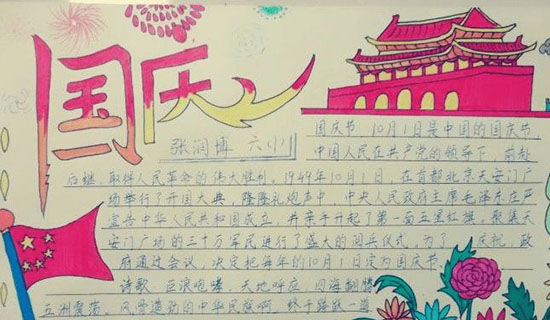 国庆
张润博 六(1)
国庆节 10月1日是中国的国庆节,
中国人民在共产党的领导下, 前赴
后继, 取得人民革命的伟大胜利, 1949年10月1日, 在首都北京天安门广
场举行了开国大典, 隆隆礼炮声中, 中央人民政府主席毛泽东庄严
宣告中华人民共和国成立, 并亲手升起了第一面五星红旗, 聚集天
安门广场的三十万军民进行了盛大的阅兵仪式, 为了 庆祝, 政
府通过会议, 决定把每年的10月1日定为国庆节
诗歌: 巨浪咆哮, 天地呼应 四海翻腾
五洲震荡, 风雷激动的中华民族啊 终于